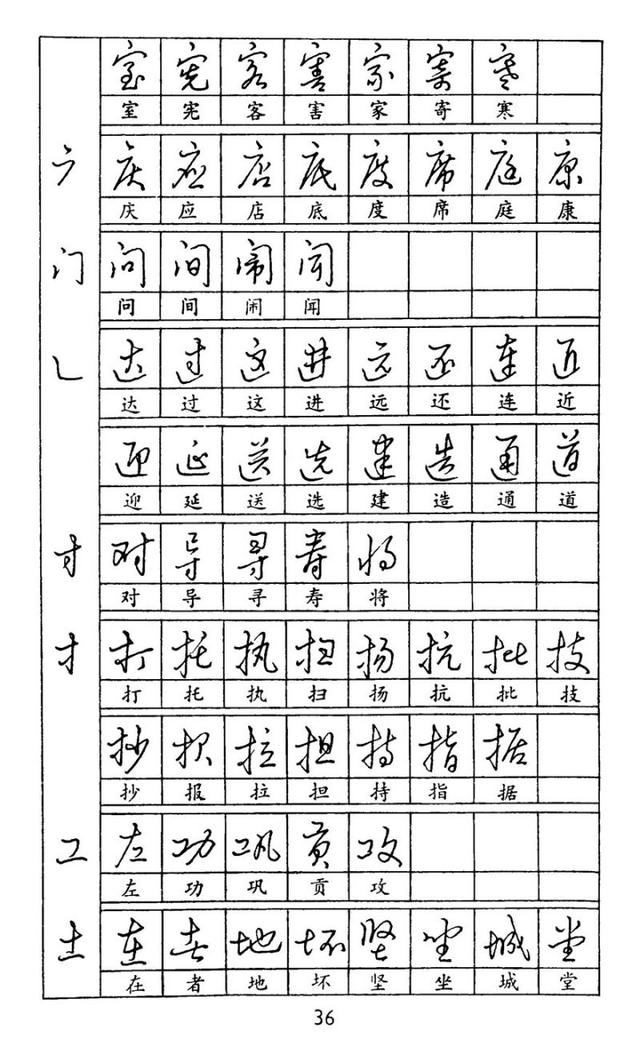 室 宪 客 害 家 寄 寒
室 宪 客 害 家 寄 寒
广 庆 应 店 底 度 席 庭 康
庆 应 店 底 度 席 庭 康
门 问 间 闹 闻
问 间 闹 闻
辶 达 过 这 进 远 还 连 近
达 过 这 进 远 还 连 近
迎 延 送 选 建 造 通 道
迎 延 送 选 建 造 通 道
寸 对 导 寻 寿 将
对 导 寻 寿 将
扌 打 托 执 扫 扬 抗 批 技
打 托 执 扫 扬 抗 批 技
抄 报 拉 担 持 指 据
抄 报 拉 担 持 指 据
工 左 功 巩 贡 攻
左 功 巩 贡 攻
土 在 者 地 坏 坚 坐 城 堂
在 者 地 坏 坚 坐 城 堂
36